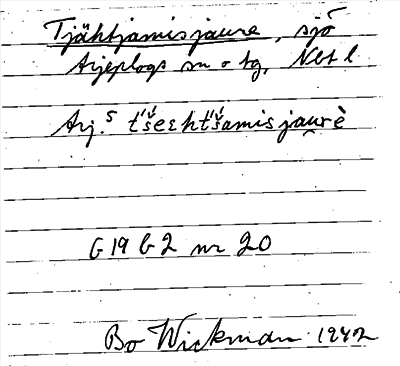 Tjähtjamisjaure, sjö
Arjeplogs sn o tg, Nbt l.
Arj.ˢ t́š́eεht́š́amis jau̯rè
G 19 b 2 nr 20
Bo Wickman 1942